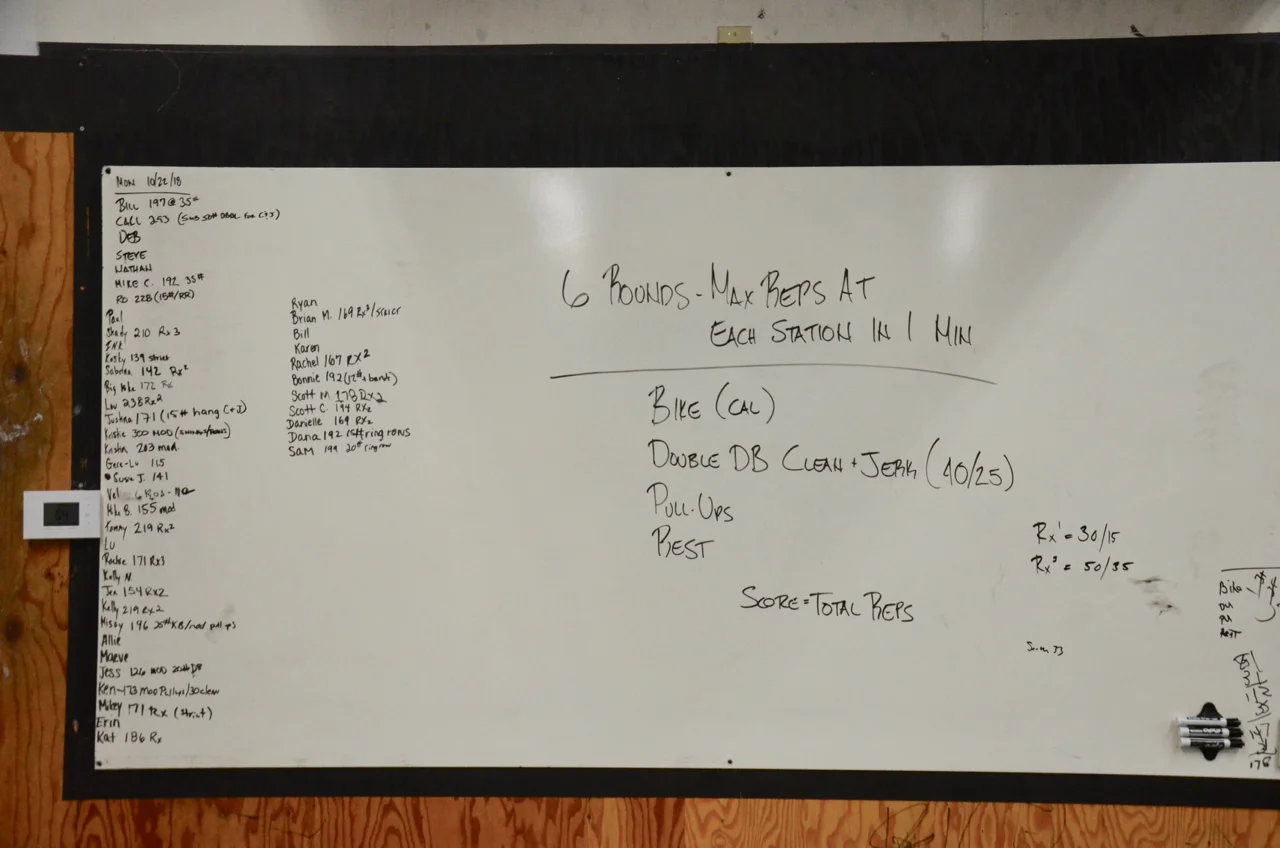 MON 10/22/18
BILL 197@35#
CALL 253
DEB
STEVE
NATHAN
MIKE C. 192 35#
228 (15#/RR)
Paul
210 Rx3
139 strict
142 Rx2
Big Mike 172 Rx
238 Rx2
171 (15# hang C+J)
300 MOD
Kristin 203 mod.
115
Susie J. 141
Mike B. 155 mod
Tommy 219 Rx2
LU
171 Rx3
Kelly N.
Jen 154 Rx2
Kelly 219 Rx2
Missy 196 25# KB/mod pull ups
Allie
Maeve
Jess 126 MOD 20# DB
Ken-173 MOD Pullups/30 clean
Mikey 171 Rx (strict)
Erin
Kat 186 Rx
Ryan
Brian M. 169 Rx3/strict
Bill
Karen
Rachel 167 RX2
Bonnie 192 (12# + band)
Scott M. 178 Rx2
Scott C. 194 RX2
Danielle 169 RX2
Dana 192 15# ring rows
SAM 199 20# ring row
6 ROUNDS - MAX REPS AT
EACH STATION IN 1 MIN
BIKE (CAL)
DOUBLE DB CLEAN + JERK (40/25)
PULL-UPS
REST
SCORE = TOTAL REPS
Rx1 = 30/15
Rx3 = 50/35
Bike
PU
REST
176